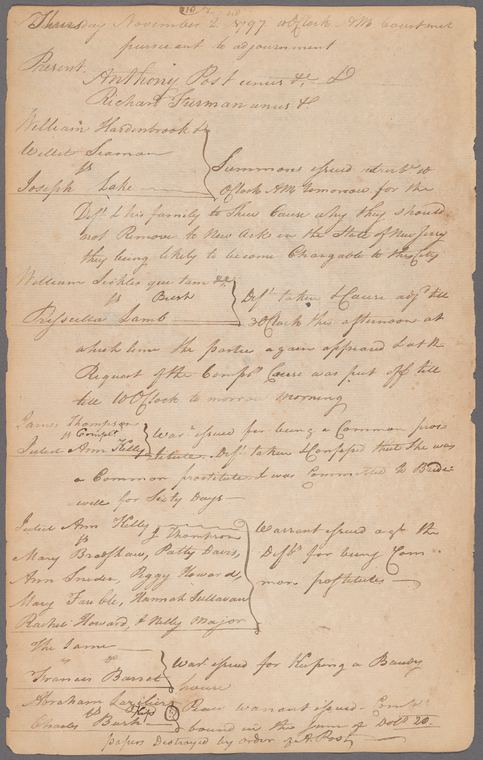 Thursday November 2 1797 10 OClock AM Court met
pursuant to adjournment
Present
Anthony Post unus &c
Richard Furman unus &c
William Hardenbrook &
Willet Seaman
vs
Joseph Lake
Summons issued retble 10
OClock AM tomorrow, for the
Deft & his family to Shew Cause why they should
not Remove to New Ark in the State of New Jersey
they being likely to become Chargable to this City
William Sickles que tam &c
vs
Priscilla Lamb
Deft taken & Cause adjd till
3 OClock this afternoon at
which time the parties again appeard & at the
Request of the Compt Cause was put off till
till 10 OClock to morrow Morning
James Thompson
vs Complt
Juliet Ann Kelly
Wart issued for being a Common pros
titute. Deft taken & Confessed that she was
a Common prostitute & was Committed to Bride
well for Sixty Days
Juliet Ann Kelly
vs J Thompson
Mary Bradshaw, Patty Davis,
Ann Snider, Peggy Howard,
Mary Fauble, Hannah Sullavan
Rachel Howard, & Nelly Major
Warrant issued agt the
Defts for being Com
mon prostitutes
The Same
vs
Francis Barret
Wart issued for Keeping a Baudy
house
Abraham
vs
Charles Burk
Peace warrant issued. Compt
bound in the sum of Dols 20
papers Destroyed by order A Post